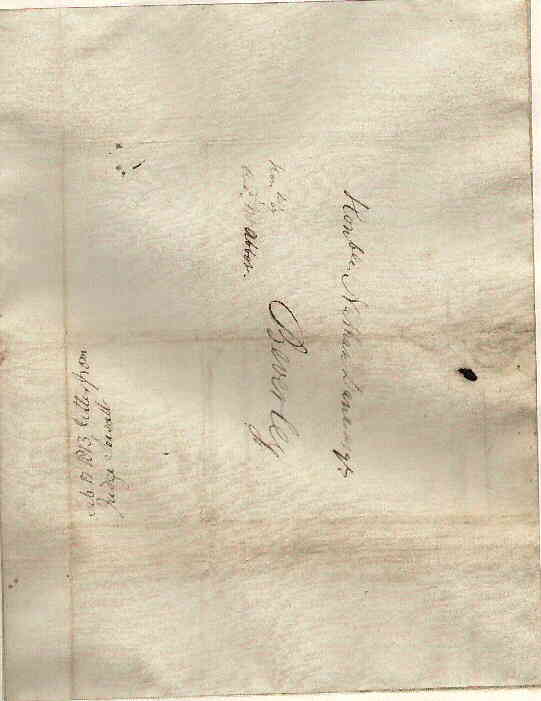 Honble. Nathan Dane Esqr.
Beverley
Abbot.
Feb 1813 Letter from
Judge Sewall